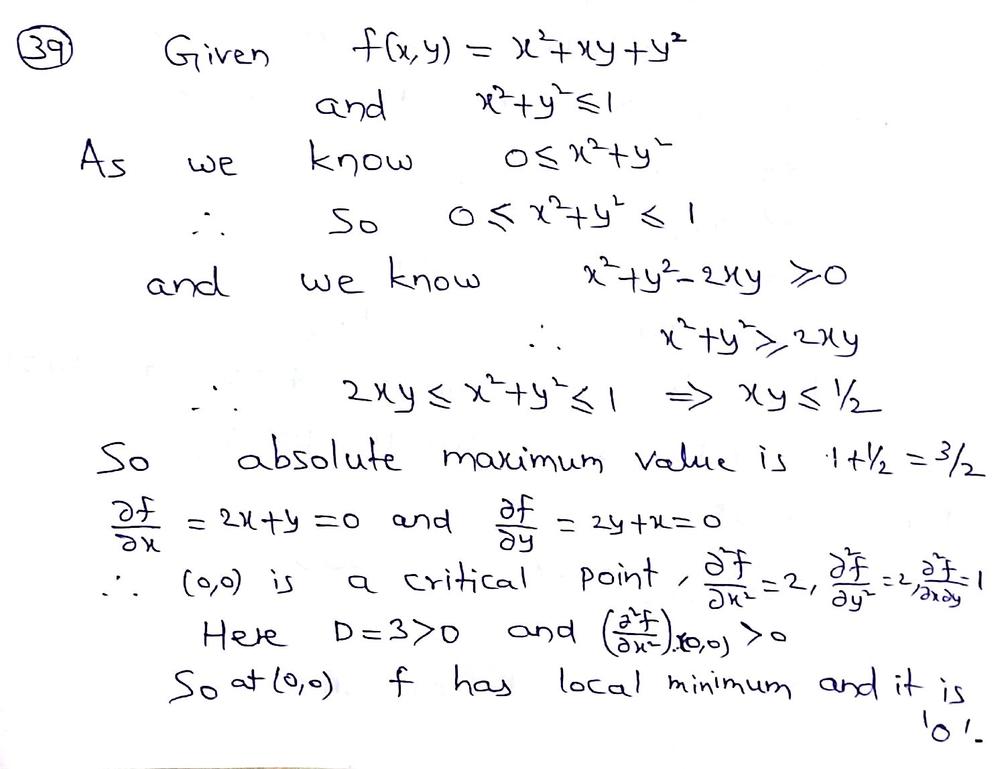 39 Given f(x,y) = x²+xy+y²
and x²+y² ≤ 1
As we know 0 ≤ x²+y²
∴ So 0 ≤ x²+y² ≤ 1
and we know x²+y²-2xy ≥ 0
∴ x²+y² ≥ 2xy
∴ 2xy ≤ x²+y² ≤ 1 ⇒ xy ≤ 1/2
So absolute maximum value is 1+1/2 = 3/2
∂f/∂x = 2x+y = 0 and ∂f/∂y = 2y+x = 0
∴ (0,0) is a critical point, ∂²f/∂x² = 2, ∂²f/∂y² = 2, ∂²f/∂x∂y = 1
Here D = 3 > 0 and (∂²f/∂x²)(0,0) > 0
So at (0,0) f has local minimum and it is
'0'.